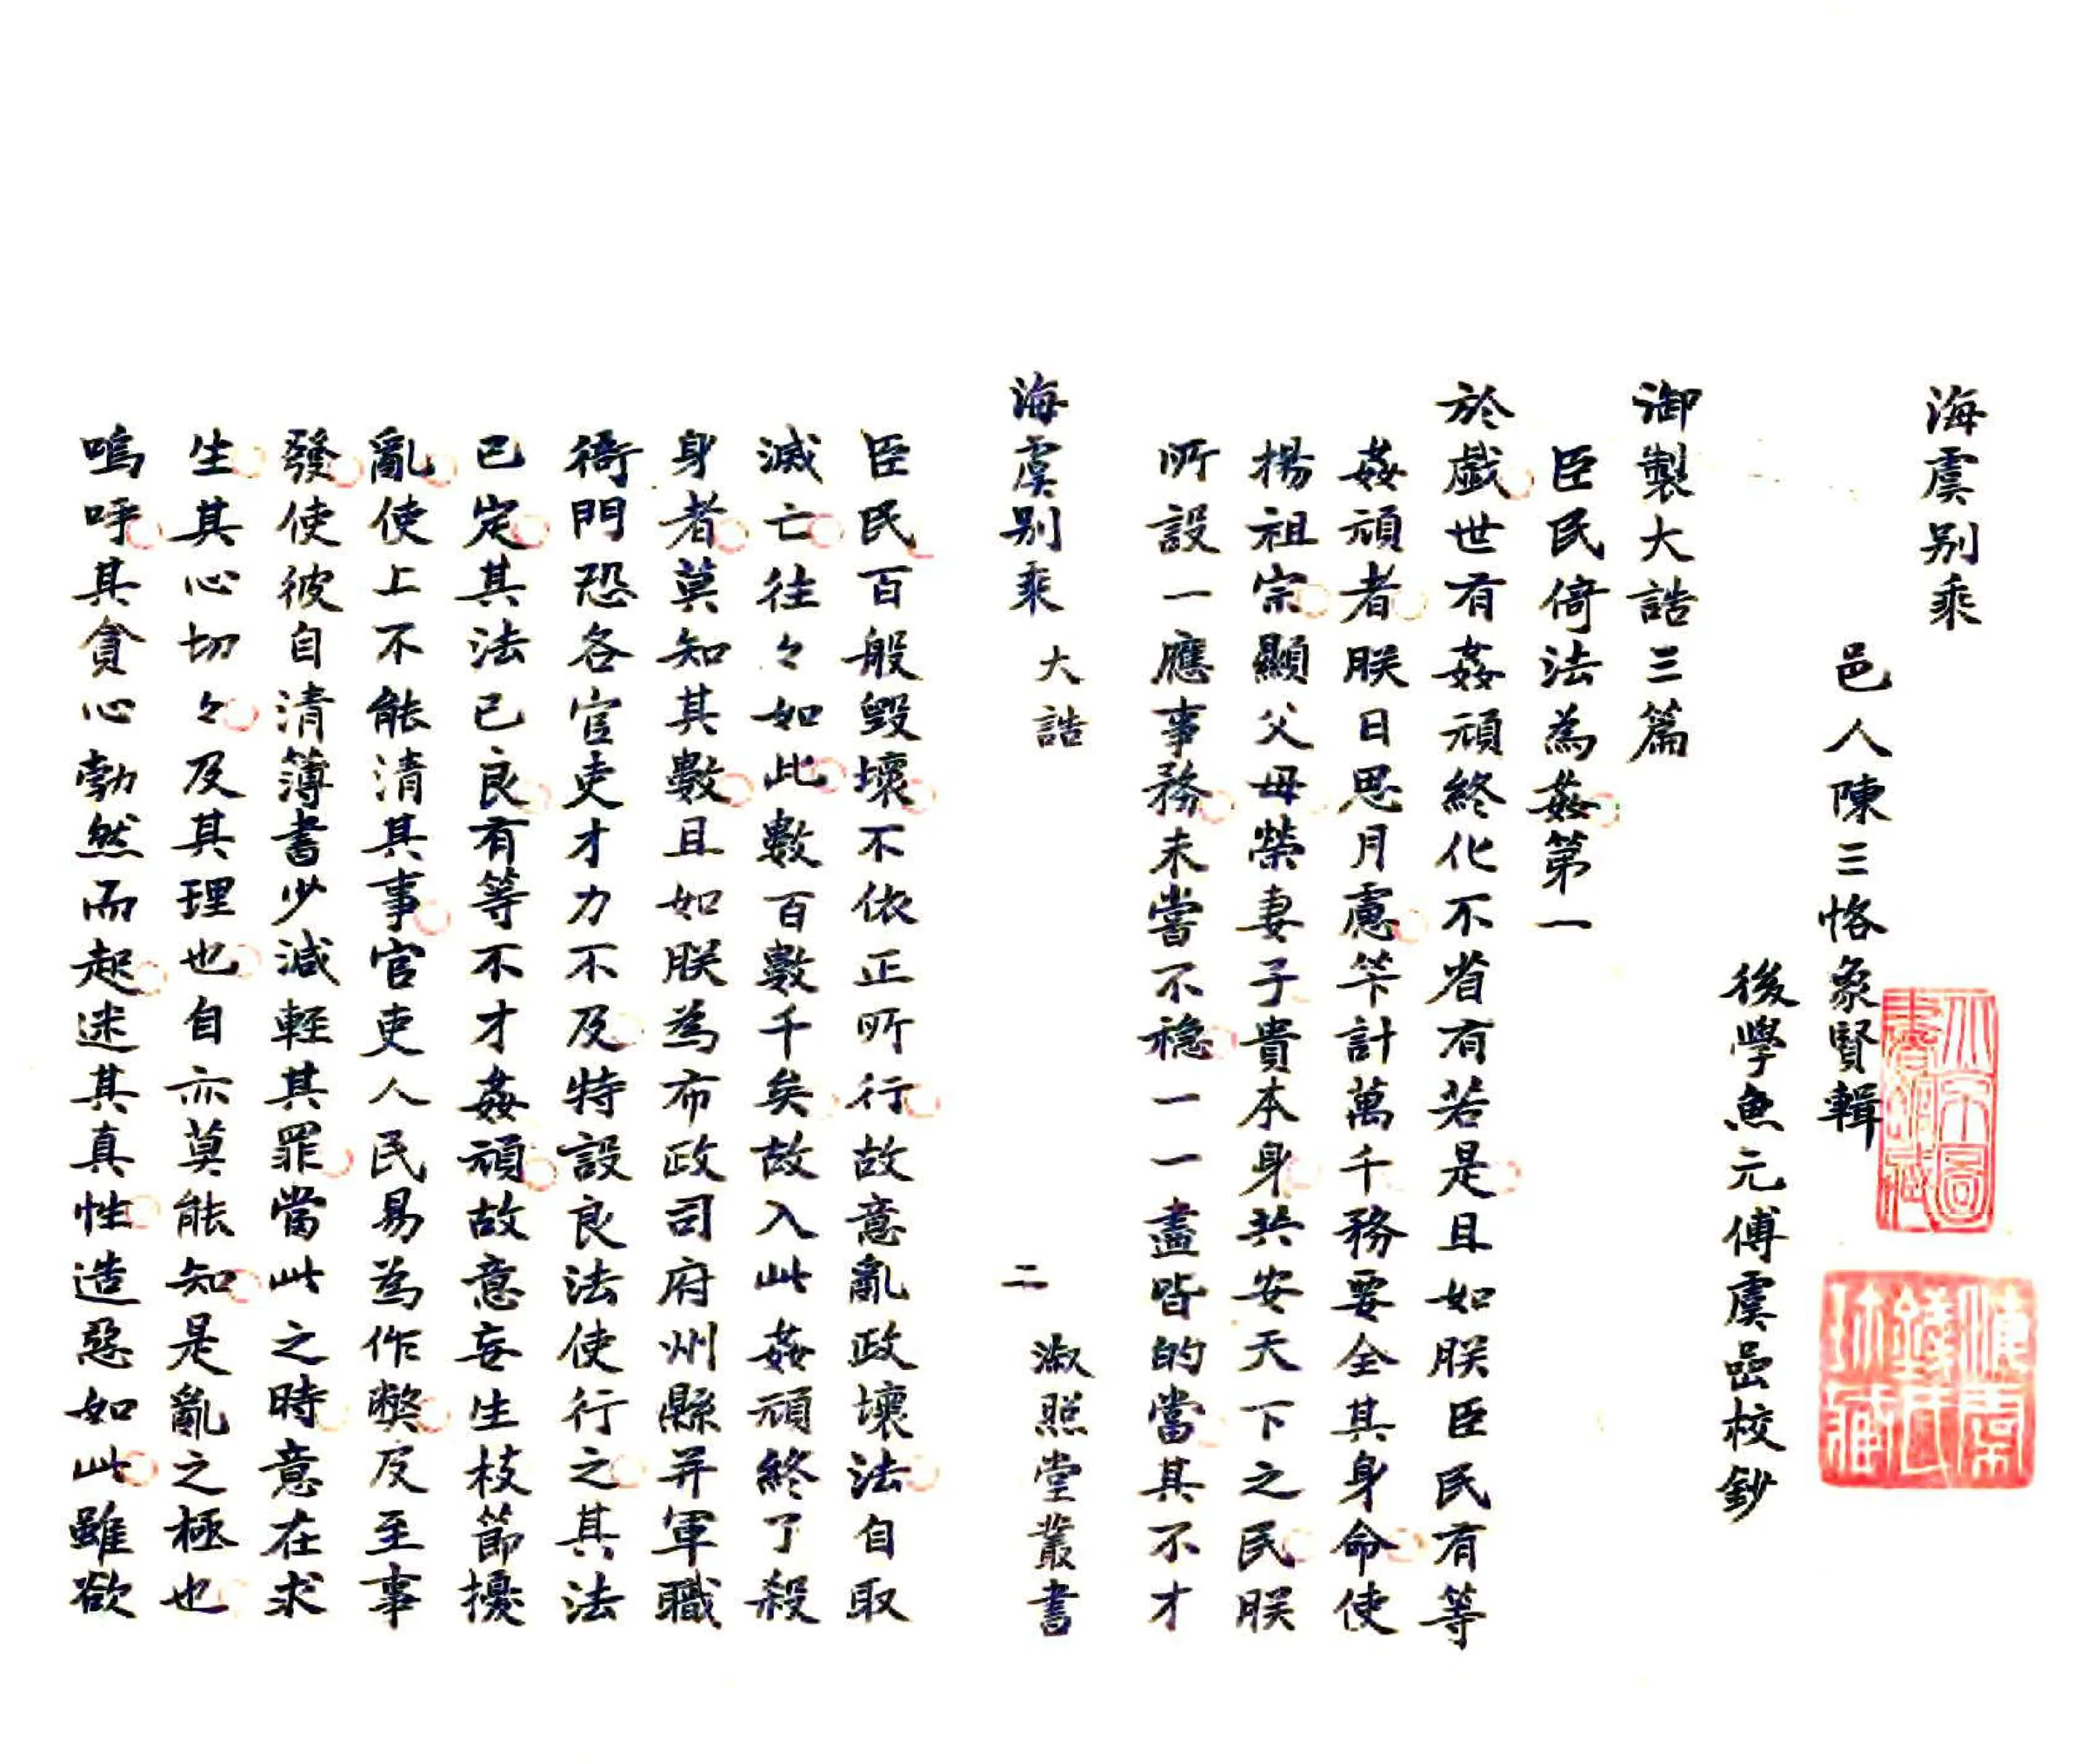 海虞别乘
邑人陳三恪象賢輯
後學魚元傅虞嵒校鈔
御製大誥三篇
臣民倚法為姦第一
於戲世有姦頑終化不省有若是且如朕臣民有等
姦頑者朕日思月慮筭計萬千務要全其身命使
揚祖宗顯父母榮妻子貴本身共安天下之民朕
所設一應事務未嘗不穩一一盡皆的當其不才
海虞别乘 大誥 二 淑照堂叢書
臣民百般毀壞不依正所行故意亂政壞法自取
滅亡往々如此數百數千矣故入此姦頑終了殺
身者莫知其數且如朕為布政司府州縣并軍職
衙門恐各官吏才力不及特設良法使行之其法
已定其法已良有等不才姦頑故意妄生枝節擾
亂使上不能清其事官吏人民易為作弊及至事
發使彼自清簿書少減輕其罪當此之時意在求
生其心切々及其理也自亦莫能知是亂之極也
嗚呼其貪心勃然而起迷其真性造惡如此雖欲